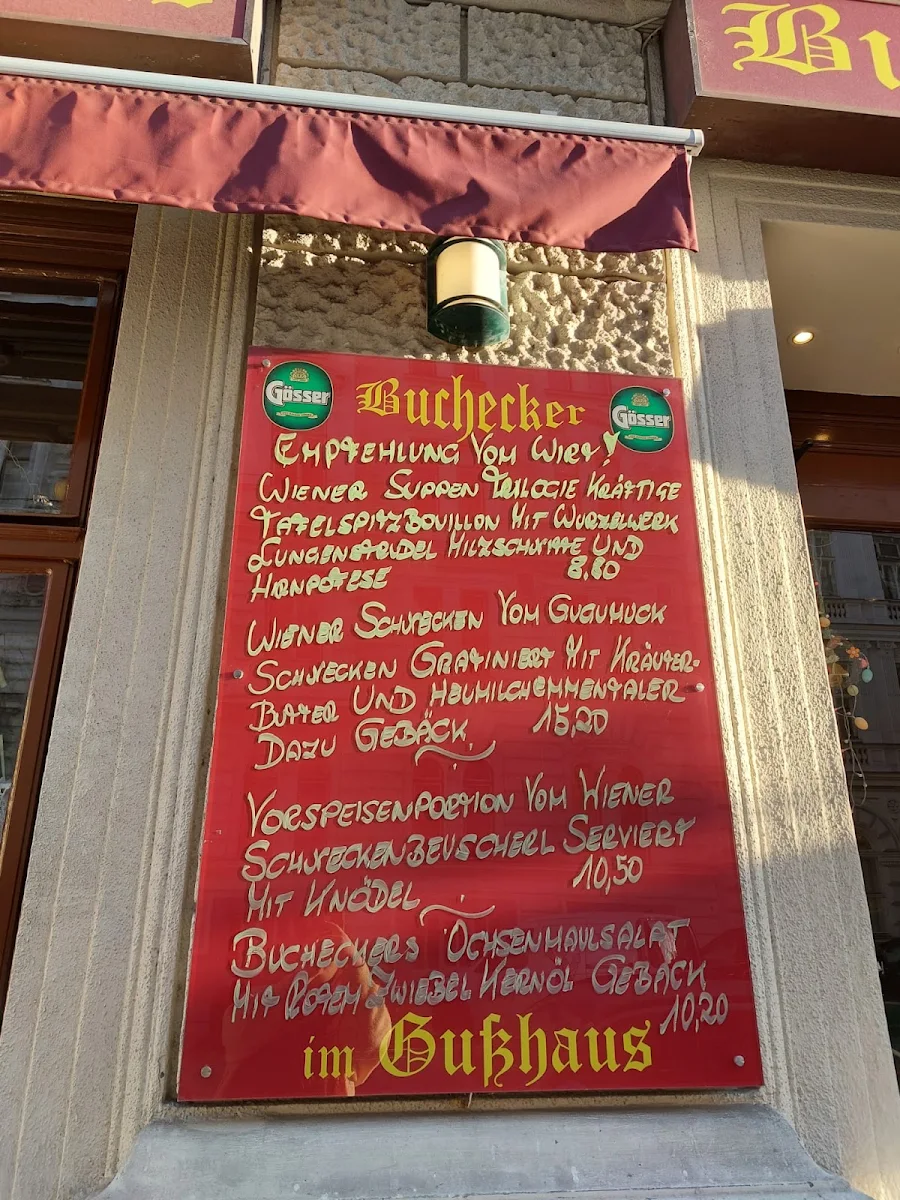 Bu
Gösser
Buchecker
Gösser
EMPFEHLUNG VOM WIRT!
WIENER SUPPEN TRILOGIE KRÄFTIGE
TAFELSPITZBOUILLON MIT WURZELWERK
LUNGENSTRUDEL MILZSCHNITTE UND
HIRNPOFESE 8.80
WIENER SCHNECKEN VOM GUGUMUCK
SCHNECKEN GRATINIERT MIT KRÄUTER-
BUTTER UND HEUMILCHEMMENTALER
DAZU GEBÄCK 15,20
VORSPEISENPORTION VOM WIENER
SCHNECKENBEUSCHERL SERVIERT
MIT KNÖDEL 10,50
BUCHECKERS OCHSENMAULSALAT
MIT ROTEM ZWIEBEL KERNÖL GEBÄCK
10,20
im Gußhaus